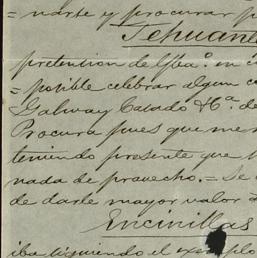 = narte y procurar p
Tehuane
pretencion de Ybaº. en c
= posible celebrar algun c
Galway Casado &Cª. de
Procura pues que me
teniendo presente que
nada de provecho. = Se
de darle mayor valor
Encinillas
iba siguiendo el exemplo